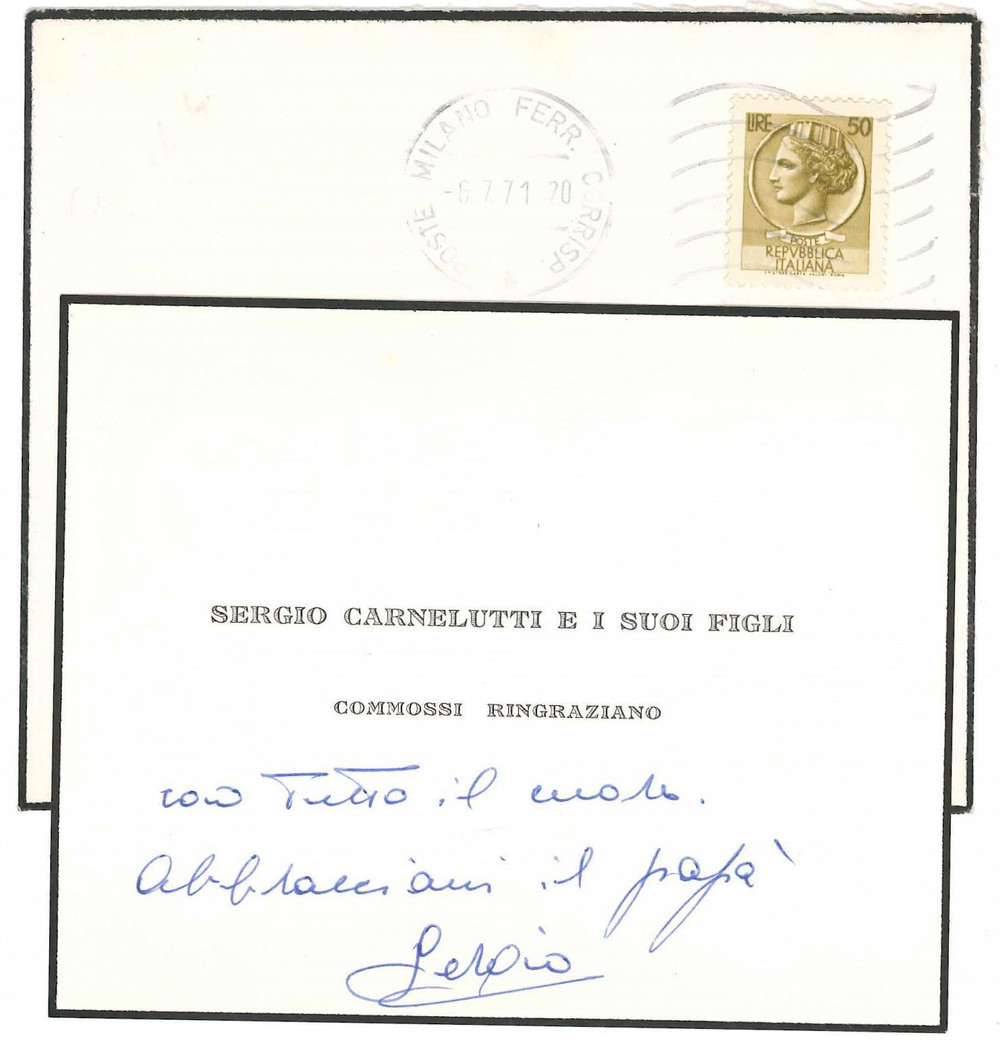 POSTE MILANO FERR. CORRISP.
-6.7.71 20
LIRE 50
POSTE
REPVBBLICA
ITALIANA
SERGIO CARNELUTTI E I SUOI FIGLI
COMMOSSI RINGRAZIANO
con tutto il cuore.
Abbracciami il papà
Sergio